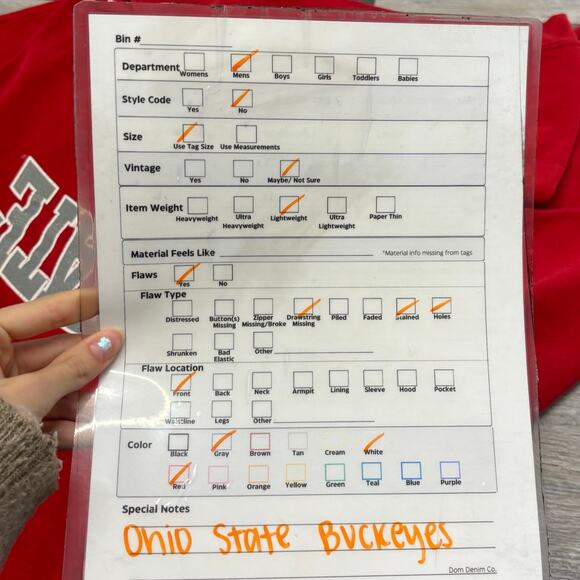 Bin #
Department Womens Mens Boys Girls Toddlers Babies
Style Code Yes No
Size Use Tag Size Use Measurements
Vintage Yes No Maybe/ Not Sure
Item Weight Heavyweight Ultra Heavyweight Lightweight Ultra Lightweight Paper Thin
Material Feels Like *Material info missing from tags
Flaws Yes No
Flaw Type
Distressed Button(s) Missing Zipper Missing/Broke Drawstring Missing Piled Faded Stained Holes
Shrunken Bad Elastic Other
Flaw Location
Front Back Neck Armpit Lining Sleeve Hood Pocket
Waistline Legs Other
Color Black Gray Brown Tan Cream White
Red Pink Orange Yellow Green Teal Blue Purple
Special Notes
Ohio State Buckeyes
Dom Denim Co.